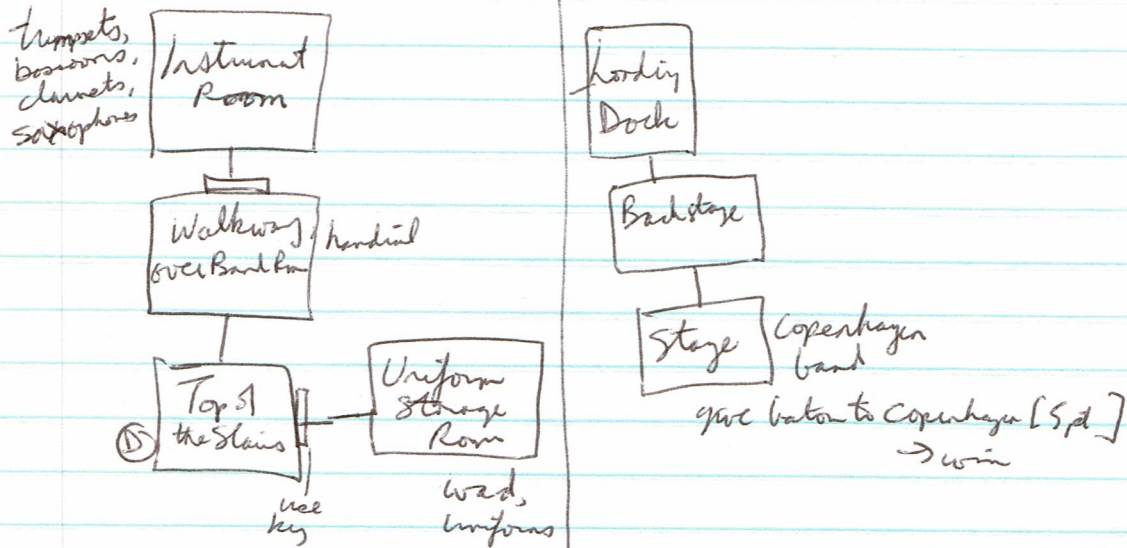 trumpets,
bassoons,
clarinets,
saxophones
Instrument
Room
Walkway
over Band Rm
handrail
Top of
the Stairs
D
use
key
Uniform
Storage
Room
wad,
uniforms
Loading
Dock
Backstage
Stage
Copenhagen
band
give baton to Copenhagen [5pt]
→ win